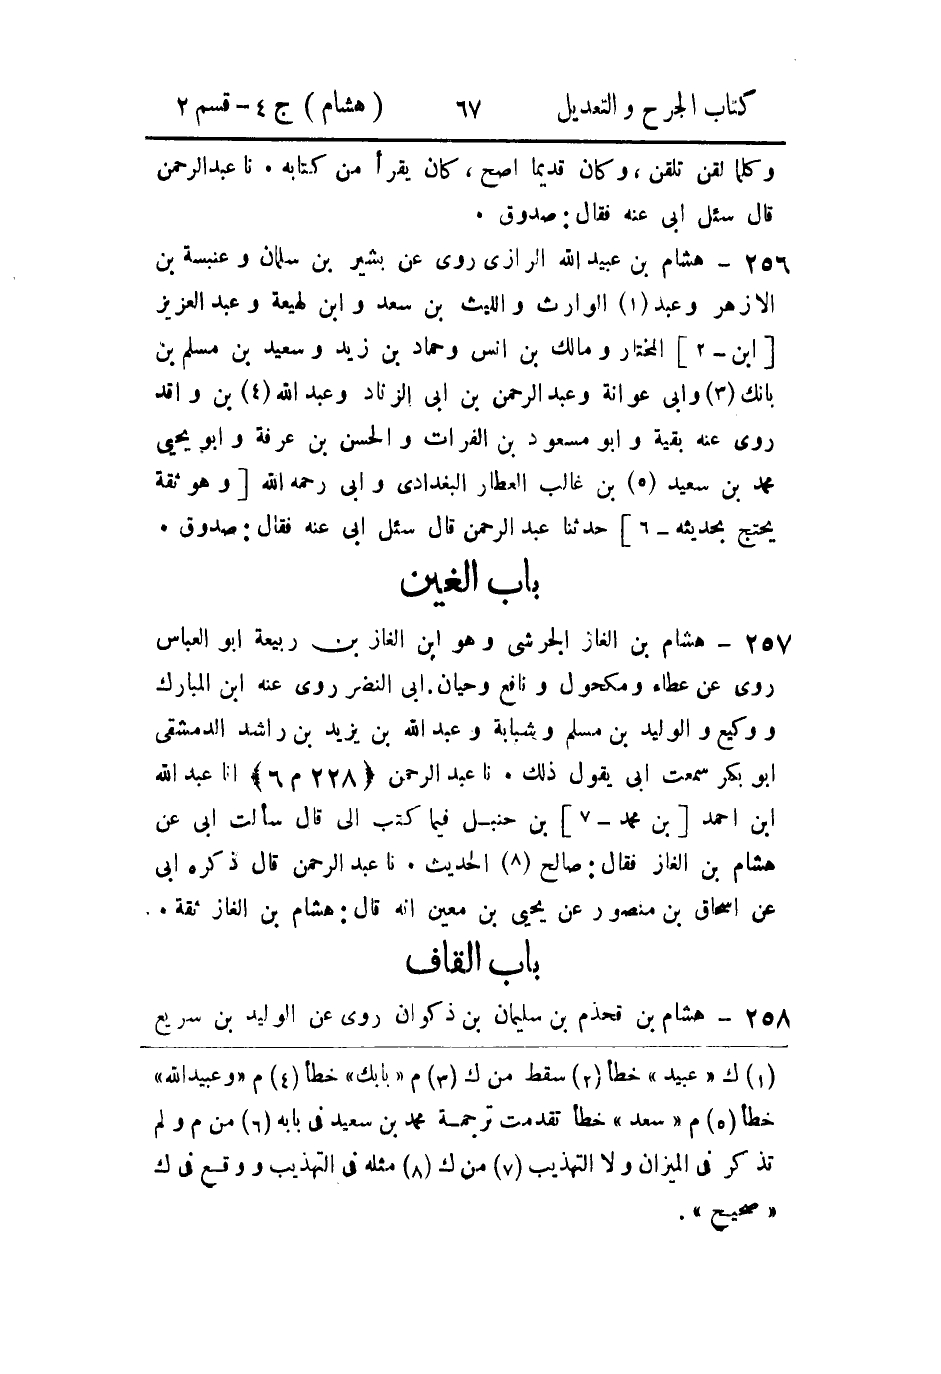 كتاب الجرح والتعديل ٦٧ (هشام) ج ٤ - قسم ٢
وكلما لقن تلقن، وكان قديما اصح، كان يقرأ من كتابه . نا عبدالرحمن
قال سئل ابى عنه فقال: صدوق .
٢٥٦ - هشام بن عبيد الله الرازى روى عن بشير بن سلمان وعنبسة بن
الازهر وعبد (١) الوارث والليث بن سعد وابن لهيعة وعبد العزيز
[ ابن - ٢ ] المختار ومالك بن انس وحماد بن زيد وسعيد بن مسلم بن
بانك (٣) وابى عوانة وعبد الرحمن بن ابى الزناد وعبد الله (٤) بن واقد
روى عنه بقية وابو مسعود بن الفرات والحسن بن عرفة وابو يحيى
محمد بن سعيد (٥) بن غالب العطار البغدادى وابى رحمه الله [ وهو ثقة
يحتج بحديثه - ٦ ] حدثنا عبد الرحمن قال سئل ابى عنه فقال: صدوق .
باب الغين
٢٥٧ - هشام بن الغاز الجرشى وهو ابن الغاز بن ربيعة ابو العباس
روى عن عطاء ومكحول ونافع وحيان. ابى النضر روى عنه ابن المبارك
ووكيع والوليد بن مسلم وشبابة وعبد الله بن يزيد بن راشد الدمشقى
ابو بكر سمعت ابى يقول ذلك . نا عبد الرحمن ﴿ ٢٢٨ م ٦ ﴾ انا عبد الله
ابن احمد [ بن محمد - ٧ ] بن حنبل فيما كتب الى قال سألت ابى عن
هشام بن الغاز فقال: صالح (٨) الحديث . نا عبد الرحمن قال ذكره ابى
عن اسحاق بن منصور عن يحيى بن معين انه قال: هشام بن الغاز ثقة .
باب القاف
٢٥٨ - هشام بن قحذم بن سليمان بن ذكوان روى عن الوليد بن سريع
(١) ك « عبيد » خطأ (٢) سقط من ك (٣) م « بابك » خطأ (٤) م « وعبيد الله »
خطأ (٥) م « سعد » خطأ تقدمت ترجمة محمد بن سعيد فى بابه (٦) من م ولم
تذكر فى الميزان ولا التهذيب (٧) من ك (٨) مثله فى التهذيب ووقع فى ك
« صحيح » .